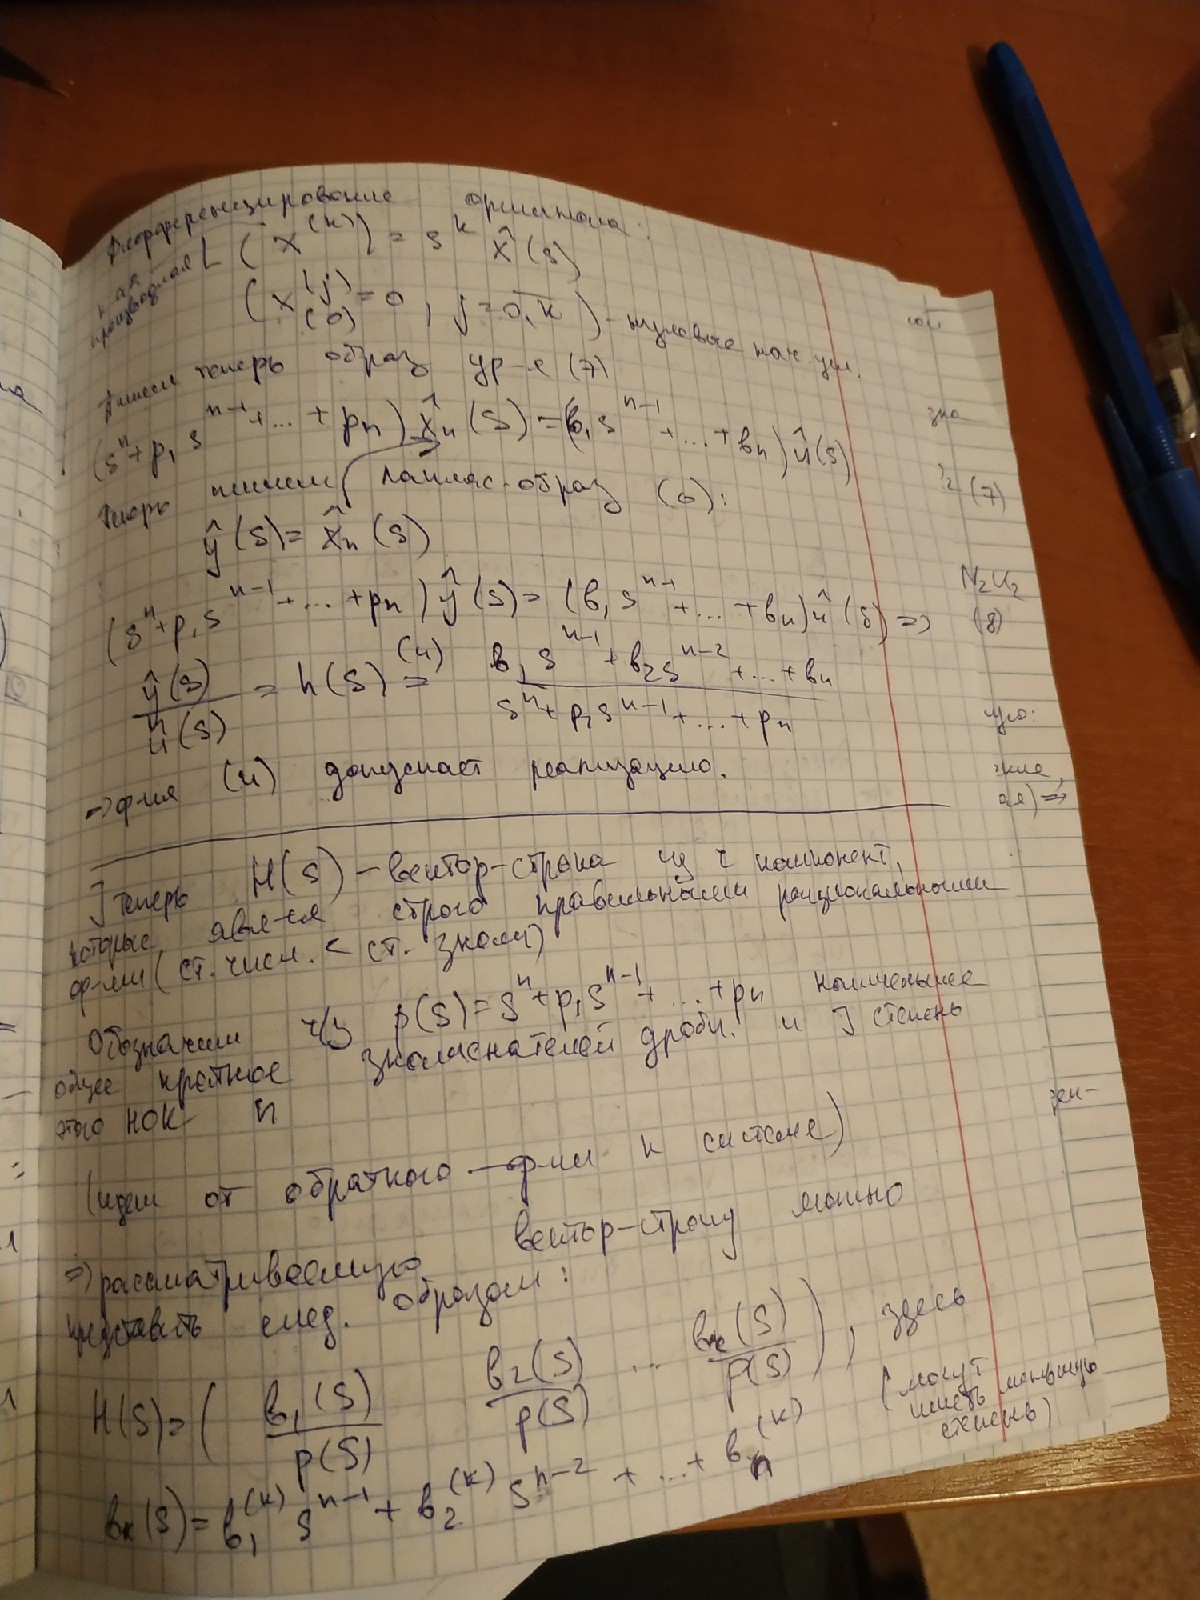 Дифференцирование оригинала:
L(x^(k)) = s^k x̂(s)
к-ая производная
(x^(j)(0) = 0, j = 0,k) – нулевые нач. усл.
Пишем теперь образ ур-е (7)
(s^n + p₁s^(n-1) + ... + pₙ) x̂ₙ(s) = (b₁s^(n-1) + ... + bₙ) û(s)
Теперь пишем лаплас-образ (6):
ŷ(s) = x̂ₙ(s)
(s^n + p₁s^(n-1) + ... + pₙ) ŷ(s) = (b₁s^(n-1) + ... + bₙ) û(s) =>
ŷ(s)/û(s) = h(s) =(4) (b₁s^(n-1) + b₂s^(n-2) + ... + bₙ)/(s^n + p₁s^(n-1) + ... + pₙ)
=> ф-ия (4) допускает реализацию.
] теперь H(s) – вектор-строка из r компонент,
которые явл-ся строго правильными рациональными
ф-ями (ст. числ. < ст. знам)
Обозначим ч/з p(s) = s^n + p₁s^(n-1) + ... + pₙ наименьшее
общее кратное знаменателей дроби. и ] степень
этого НОК n
(идем от обратного – ф-ии к системе)
=> рассматриваемую вектор-строку можно
представить след. образом:
H(s) = ( b₁(s)/p(s) b₂(s)/p(s) ... bᵣ(s)/p(s) ), здесь
bₖ(s) = b₁^(k) s^(n-1) + b₂^(k) s^(n-2) + ... + bₙ^(k)
(могут
иметь меньшую
степень)
(7)
(8)